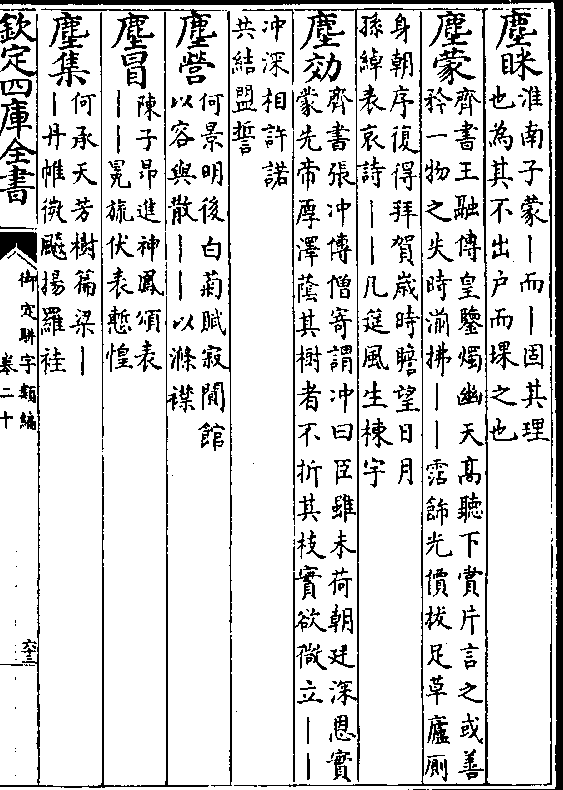 塵眯
淮南子蒙丨而丨固其理
也為其不出户而堁之也
塵蒙
齊書王融傳皇鑒燭幽天髙聽下賞片言之或善
矜一物之失時湔拂丨丨霑飾光價拔足草廬厠
身朝序復得拜賀嵗時瞻望日月
孫綽表哀詩丨丨几筵風生棟宇
塵効
齊書張冲傳僧寄謂冲曰臣雖未荷朝廷深恩實
蒙先帝厚澤蔭其樹者不折其枝實欲微立丨丨
冲深相許諾
共結盟誓
塵營
何景明後白菊賦寂閒館
以容與散丨丨以滌襟
塵冒
陳子昂進神鳳頌表
丨丨冕旒伏表慙惶
塵集
何承天芳樹篇梁丨
丨丹帷微飈揚羅袿
欽定四庫全書
御定駢字類編
卷二十